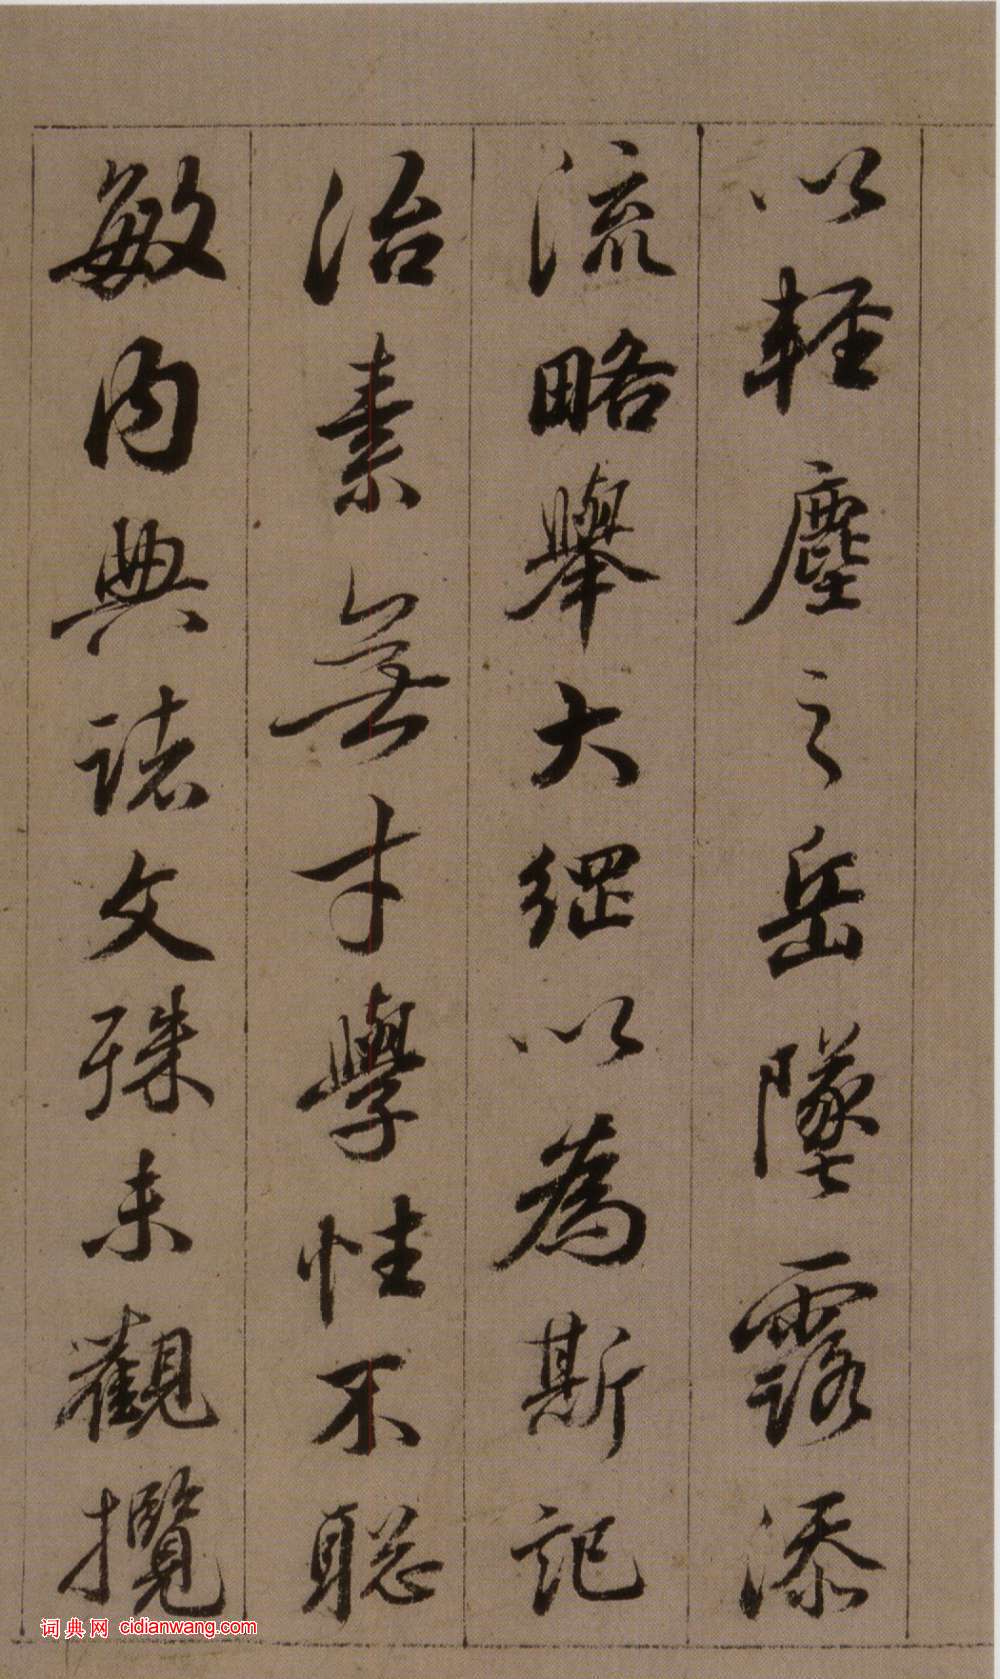 以輕塵之岳墜露添
流略舉大綱以為斯記
治素無才學性不聡
敏內典諸文殊未觀攬
词典网 cidianwang.com